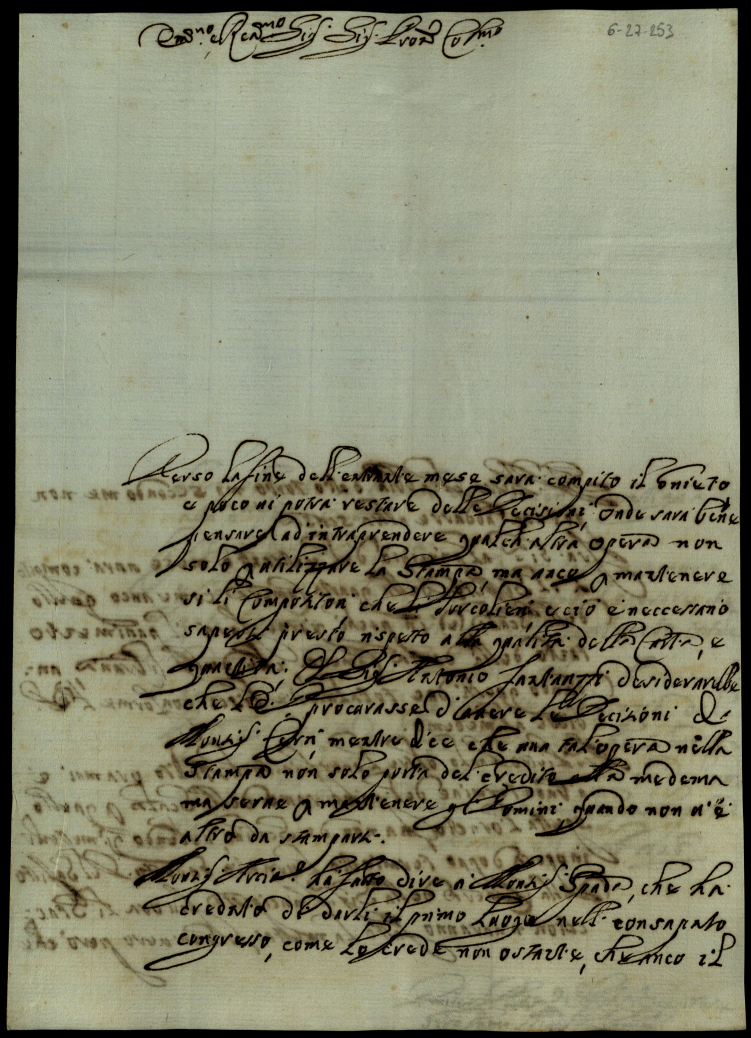 Em.mo e Reu.mo Sig.r Sig.r Pron Col.mo
6-27-253
Verso la fine dell'entrante mese sarà compito il
e poco ui potrà restare delle Decisioni, onde sarà bene
pensare ad intraprendere qualch'altra opera non
solo p utilizzare la Stampa, ma anco p mantenere
si li Compositori che li Torcolieri, e ciò è neccessario
sapersi presto rispetto alla qualità della Carta, e
quantità; Il Sig.r Antonio desiderarebbe
che V.E. procurasse d'hauere le Decisioni di
Monsig.r mentre dice che una tal opera nella
Stampa non solo porta del credito alla medema
ma serue p mantenere gl'Homini, quando non ui è
altro da stampare.
Monsig.r ha fatto dire a Monsig.r Spada, che ha
creduto di darli il primo luogo nell'consaputo
congresso, come lo crede non ostante, che anco il